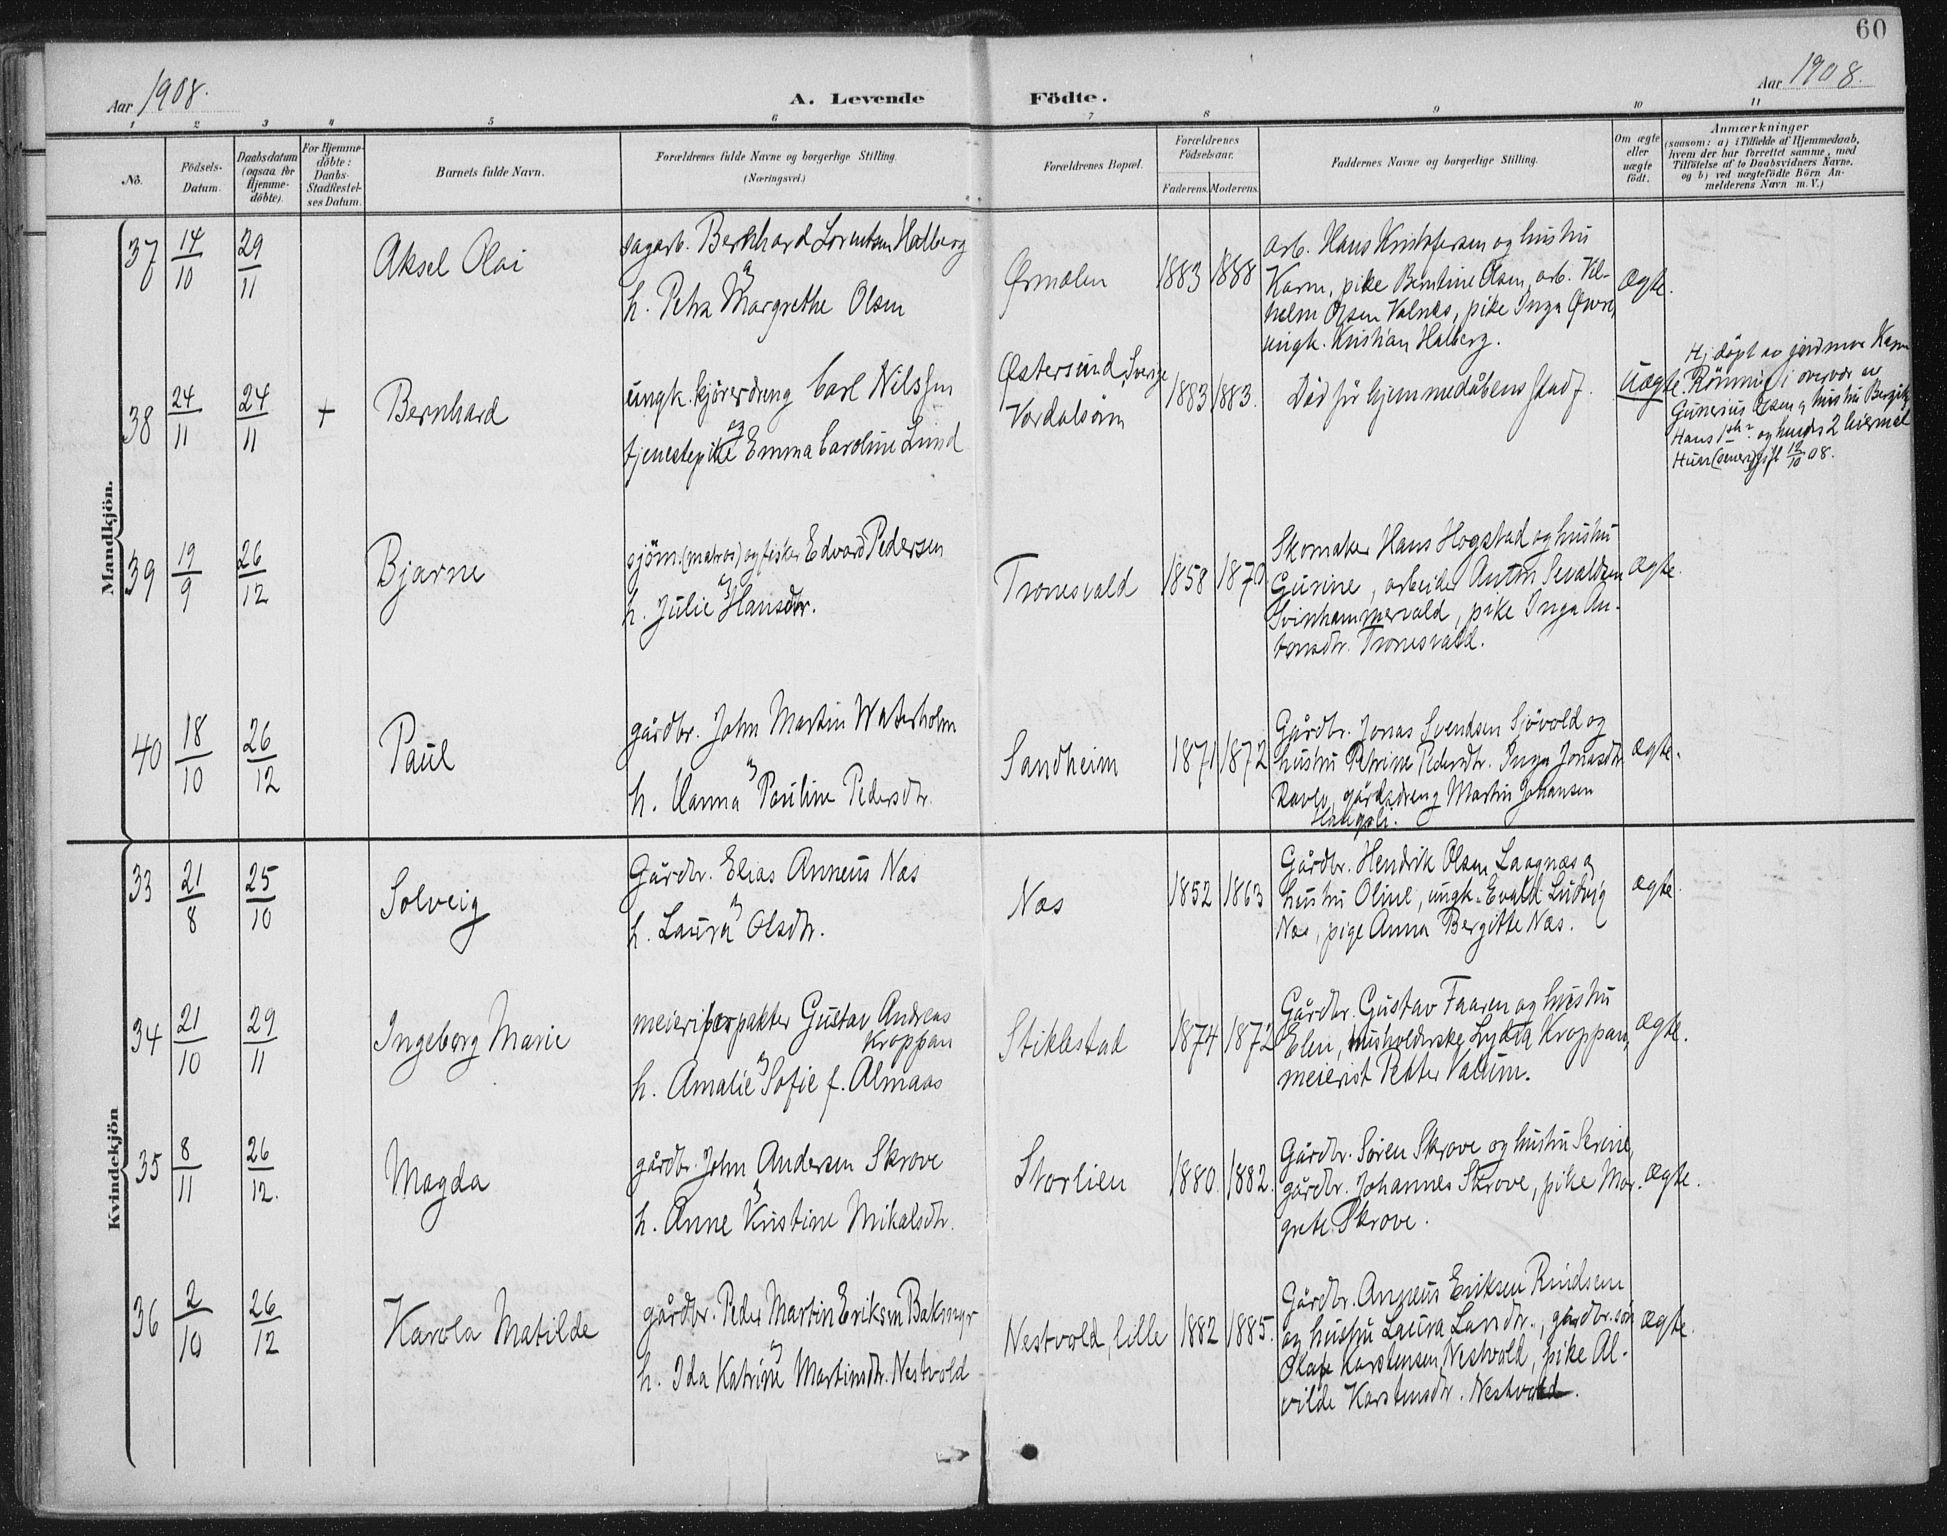 60
Aar 1908.
A. Levende Födte.
Aar 1908.
1 2 3 4 5 6 7 8 9 10 11
No.
Födsels-
Datum.
Daabsdatum
(ogsaa for
Hjemme-
döbte).
For Hjemme-
döbte:
Daabs-
Stadfæstel-
ses Datum.
Barnets fulde Navn.
Forældrenes fulde Navne og borgerlige Stilling.
(Næringsvei.)
Forældrenes Bopæl.
Forældrenes
Födselsaar.
Faderens. Moderens.
Faddernes Navne og borgerlige Stilling.
Om ægte
eller
uægte
födt.
Anmærkninger
(saasom: a) i Tilfælde af Hjemmedaab,
hvem der har forrettet samme, med
Tilföielse af to Daabsvidners Navne,
og b) ved uægtefödte Börn An-
melderens Navn m. V.)
Mandkjön.
37 14/10 29/11 Aksel Olai
sagarb. Bernhard Lorentsen Halberg
og
h. Petra Margrethe Olsen
Ørmelen 1883 1888
arb. Hans Kristofersen og hustru
Karen, pike Berntine Olsen, arb. Vil-
helm Olsen Valnes, pike Inga
ungk. Kristian Halberg.
ægte.
38 24/11 24/11 + Bernhard
ungk. kjøredreng Carl Nilssen
og
tjenestepike Emma Caroline Lund
Østersund, Sverige
Verdalsøren
1883 1883.
Død før hjemmedåbens stadf.
Uægte.
Hj.døpt av jordmor Karen
Rönning i overvær av
Gunerius Olsen og hustru
Hans 1ste og hendes 2
12/10 08.
39 19/9 26/12 Bjarne
sjöm. (matros) og fisker Edvard Pedersen
og
h. Julie Hansdtr.
Tronesvald 1858 1870
Skomaker Hans Hogstad og hustru
Gurine, arbeider Anton Sevaldsen
Svinhammervald, pike Inga An-
tonsdtr. Tronesvald.
ægte.
40 18/10 26/12 Paul
gårdbr. John Martin Waterholm
og
h. Hanna Pauline Pedersdtr.
Sandheim 1871 1872
Gårdbr. Jonas Svendsen Sjövold og
hustru Petrine Pedersdtr. Inga Jonasdtr.
gårdsdreng Martin Johansen
ægte.
Kvindekjön
33 21/8 25/10 Solveig
Gårdbr. Elias Anneus Næs
og
h. Laura Olsdtr.
Næs 1852 1863
Gårdbr. Hendrik Olsen Laagnæs og
hustru Oline, ungk. Evald Ludvig
Næs, pige Anna Bergitte Næs.
ægte.
34 21/10 29/11 Ingeborg Marie
meieriforpakter Gustav Andreas
Kroppan
og
h. Amalie Sofie f. Almaas
Stiklestad 1874 1872
Gårdbr. Gustav Faaren og hustru
Elen, husholderske Lydia Kroppan,
meierist Peter Valum.
ægte.
35 8/11 26/12. Magda
gårdbr. John Andersen Skrove
og
h. Anne Kristine Mikalsdtr.
Storlien 1880. 1882.
Gårdbr. Søren Skrove og hustru Serine,
gårdbr. Johannes Skrove, pike Mar-
grete Skrove.
ægte.
36 2/10 26/12 Karola Matilde
gårdbr. Peder Martin Eriksen Bakmyr
og
h. Ida Katrine Martinsdtr. Nestvold
Nestvold, lille 1882 1885.
Gårdbr. Anneus Eriksen Rindsem
og hustru Laura Larsdtr., gårdbr.søn
Olaf Karstensen Nestvold, pike Al-
vilde Karstensdtr. Nestvold.
ægte.